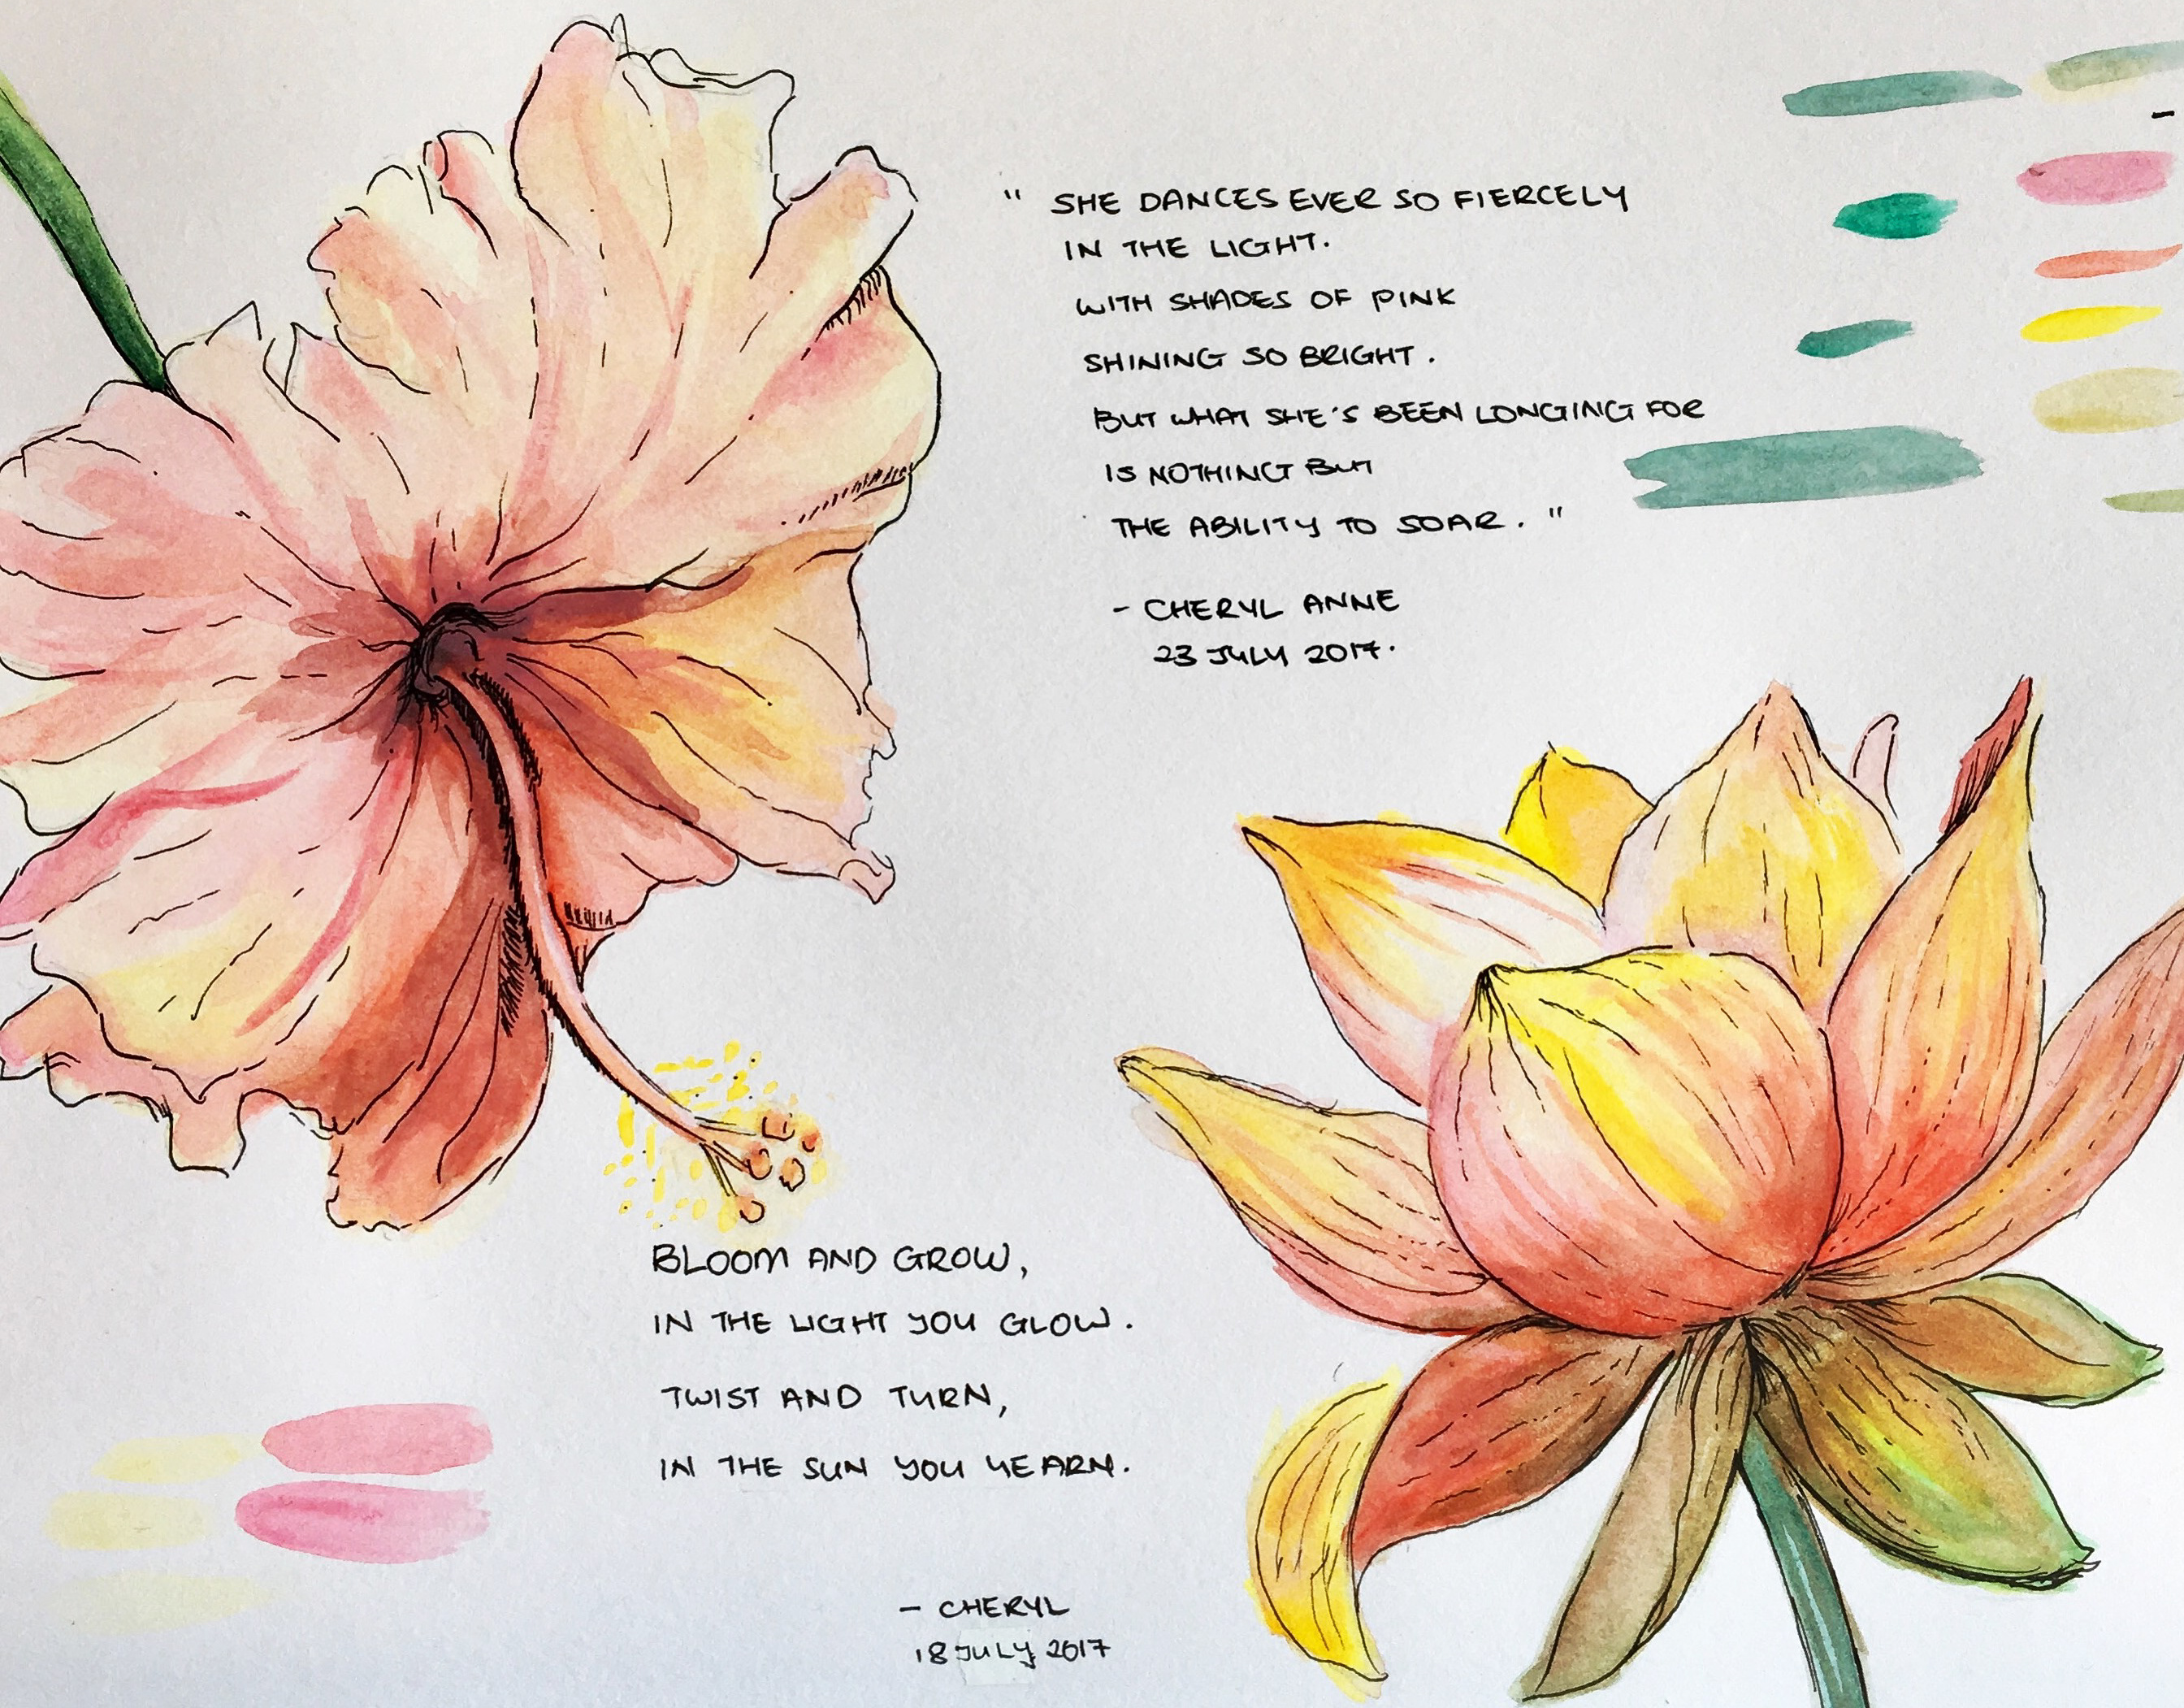 " SHE DANCES EVER SO FIERCELY
IN THE LIGHT.
WITH SHADES OF PINK
SHINING SO BRIGHT.
BUT WHAT SHE'S BEEN LONGING FOR
IS NOTHING BUT
THE ABILITY TO SOAR. "
- CHERYL ANNE
23 JULY 2017.
BLOOM AND GROW,
IN THE LIGHT YOU GLOW.
TWIST AND TURN,
IN THE SUN YOU YEARN.
- CHERYL
18 JULY 2017